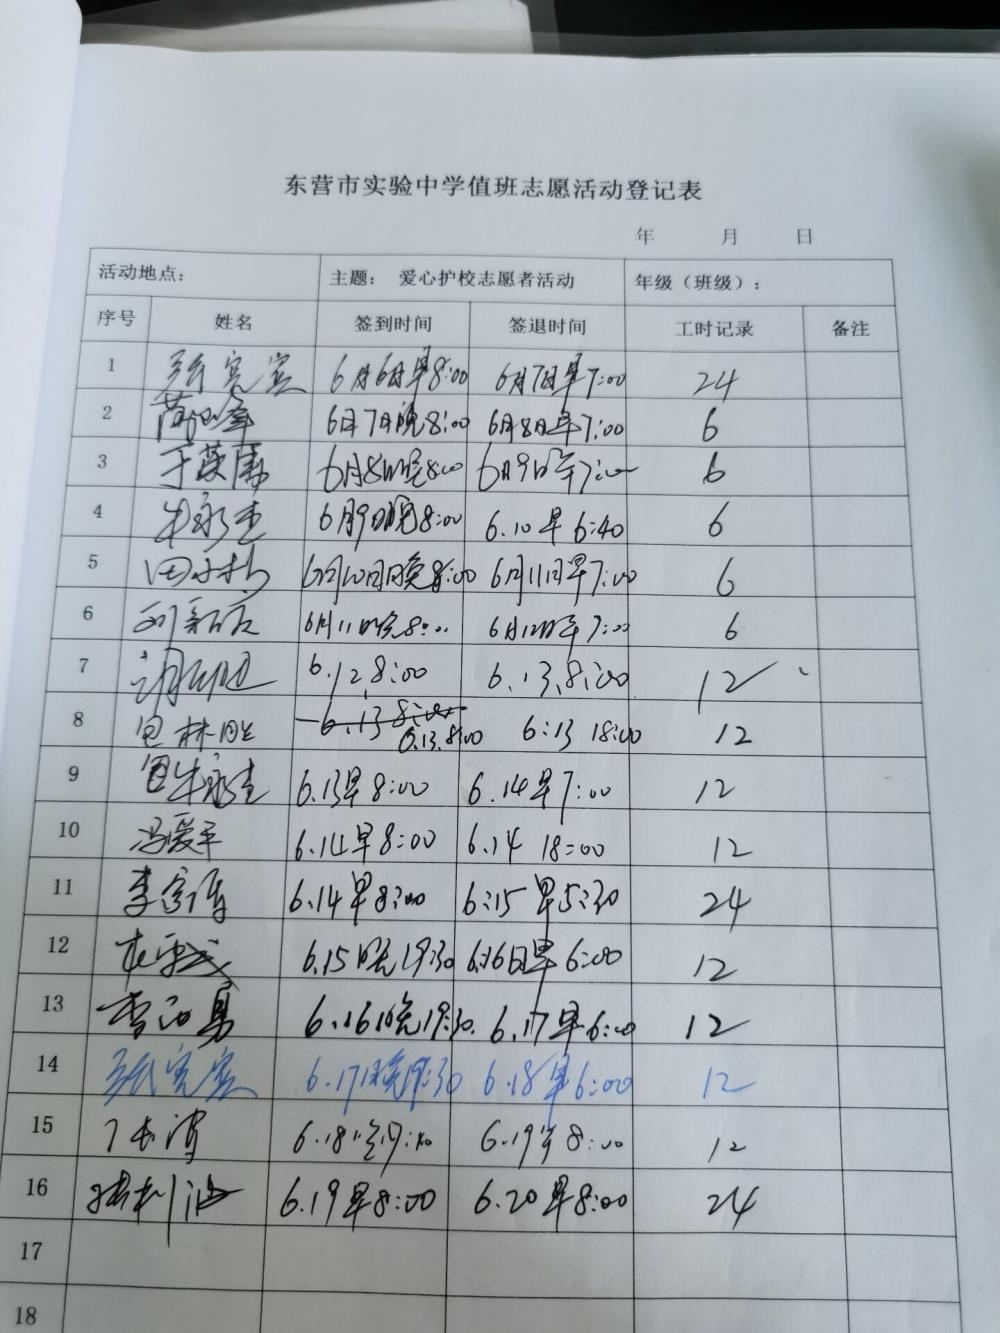 东营市实验中学值班志愿活动登记表
年 月 日
活动地点： 主题： 爱心护校志愿者活动 年级（班级）：
序号 姓名 签到时间 签退时间 工时记录 备注
1 6月6日早8:00 6月7日早7:00 24
2 6月7日晚8:00 6月8日早7:00 6
3 6月8日晚8:00 6月9日早7:00 6
4 牛永杰 6月9日晚8:00 6.10早6:40 6
5 6月10日晚8:00 6月11日早7:00 6
6 6月11日晚8:00 6月12日早7:00 6
7 6.12,8:00 6.13,8:00 12
8 6.13 8:00
6.13.8:00 6:13 18:00 12
9 牛永杰 6.13早8:00 6.14早7:00 12
10 冯爱平 6.14早8:00 6.14 18:00 12
11 6.14早8:00 6:15早5:30 24
12 6.15晚19:30 6.16日早6:00 12
13 6.16晚19:30. 6.17早6:00 12
14 6.17晚19:30 6.18早6:00 12
15 6.18 6.19早8:00 12
16 6.19早8:00 6.20早8:00 24
17
18